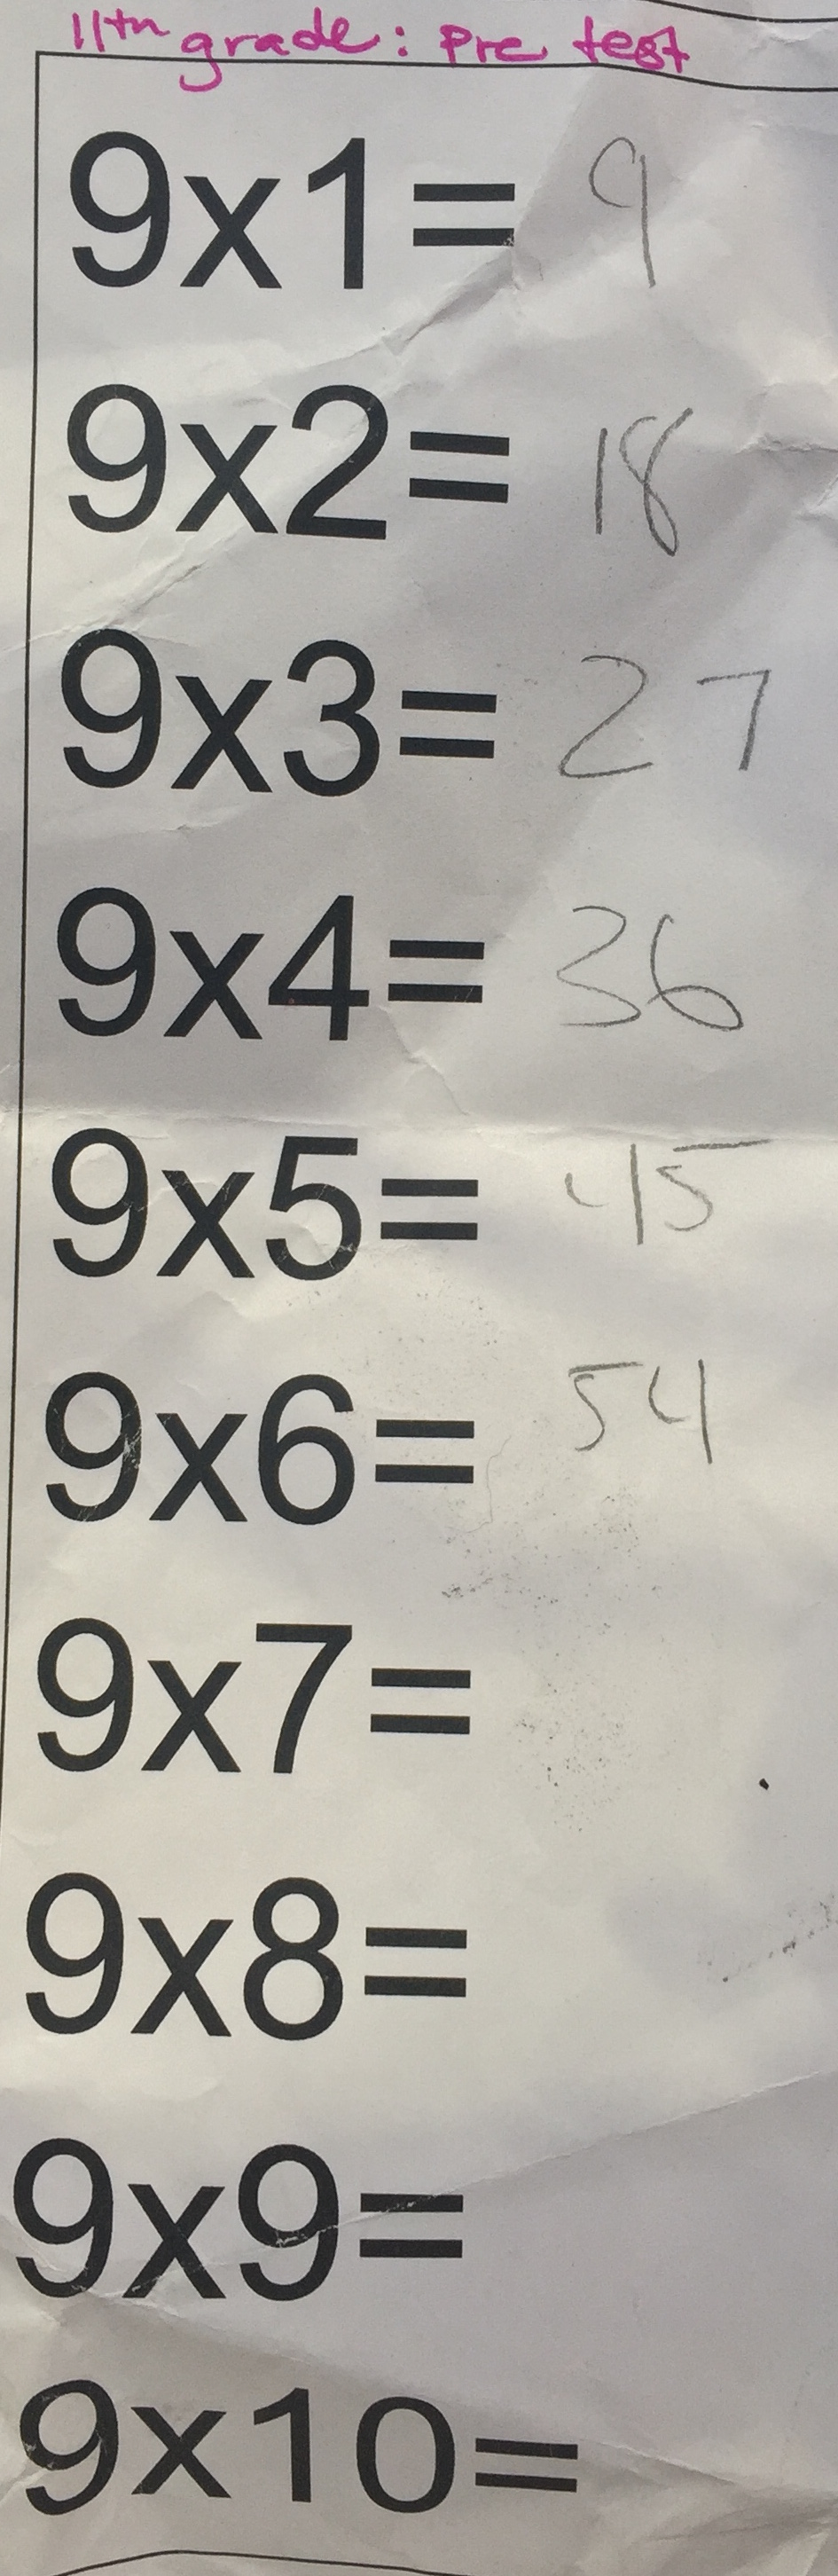 11th grade: Pre test
9x1= 9
9x2= 18
9x3= 27
9x4= 36
9x5= 45
9x6= 54
9x7=
9x8=
9x9=
9x10=